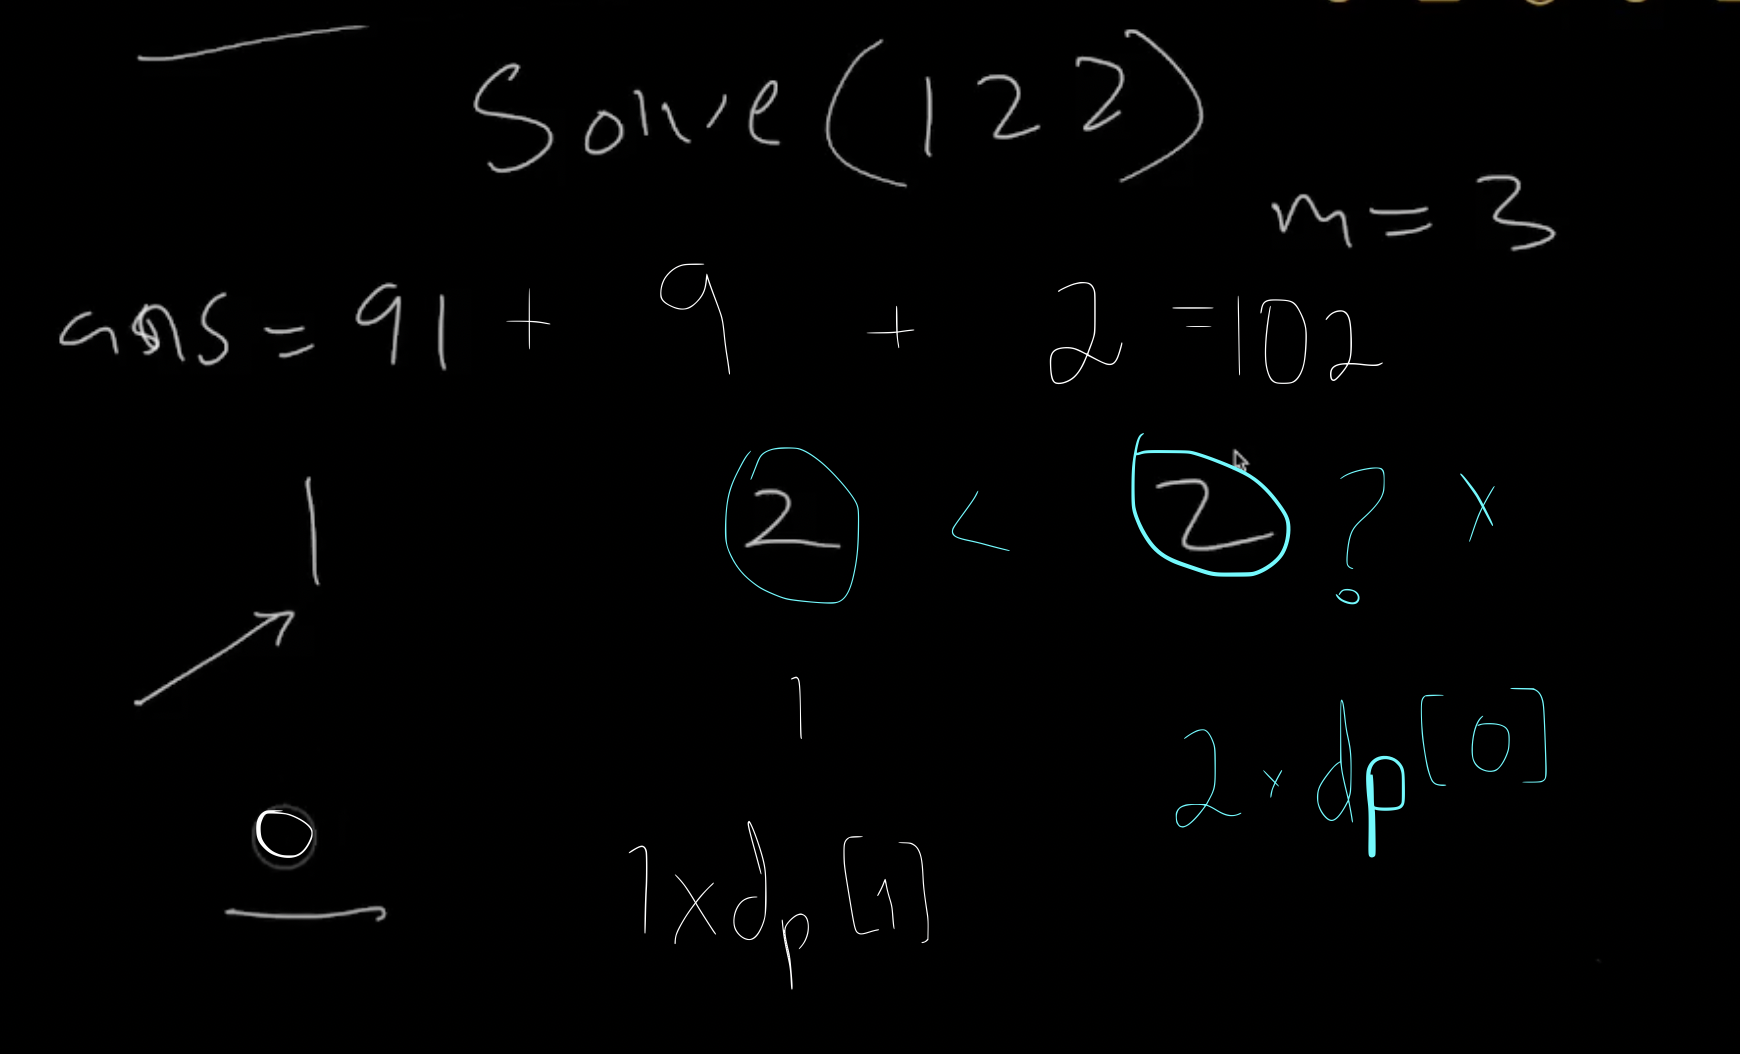 Solve(122)
m = 3
ans = 91 + 9 + 2 = 102
1 2 < 2 ? x
1
2 x dp[0]
0
1 x dp[1]